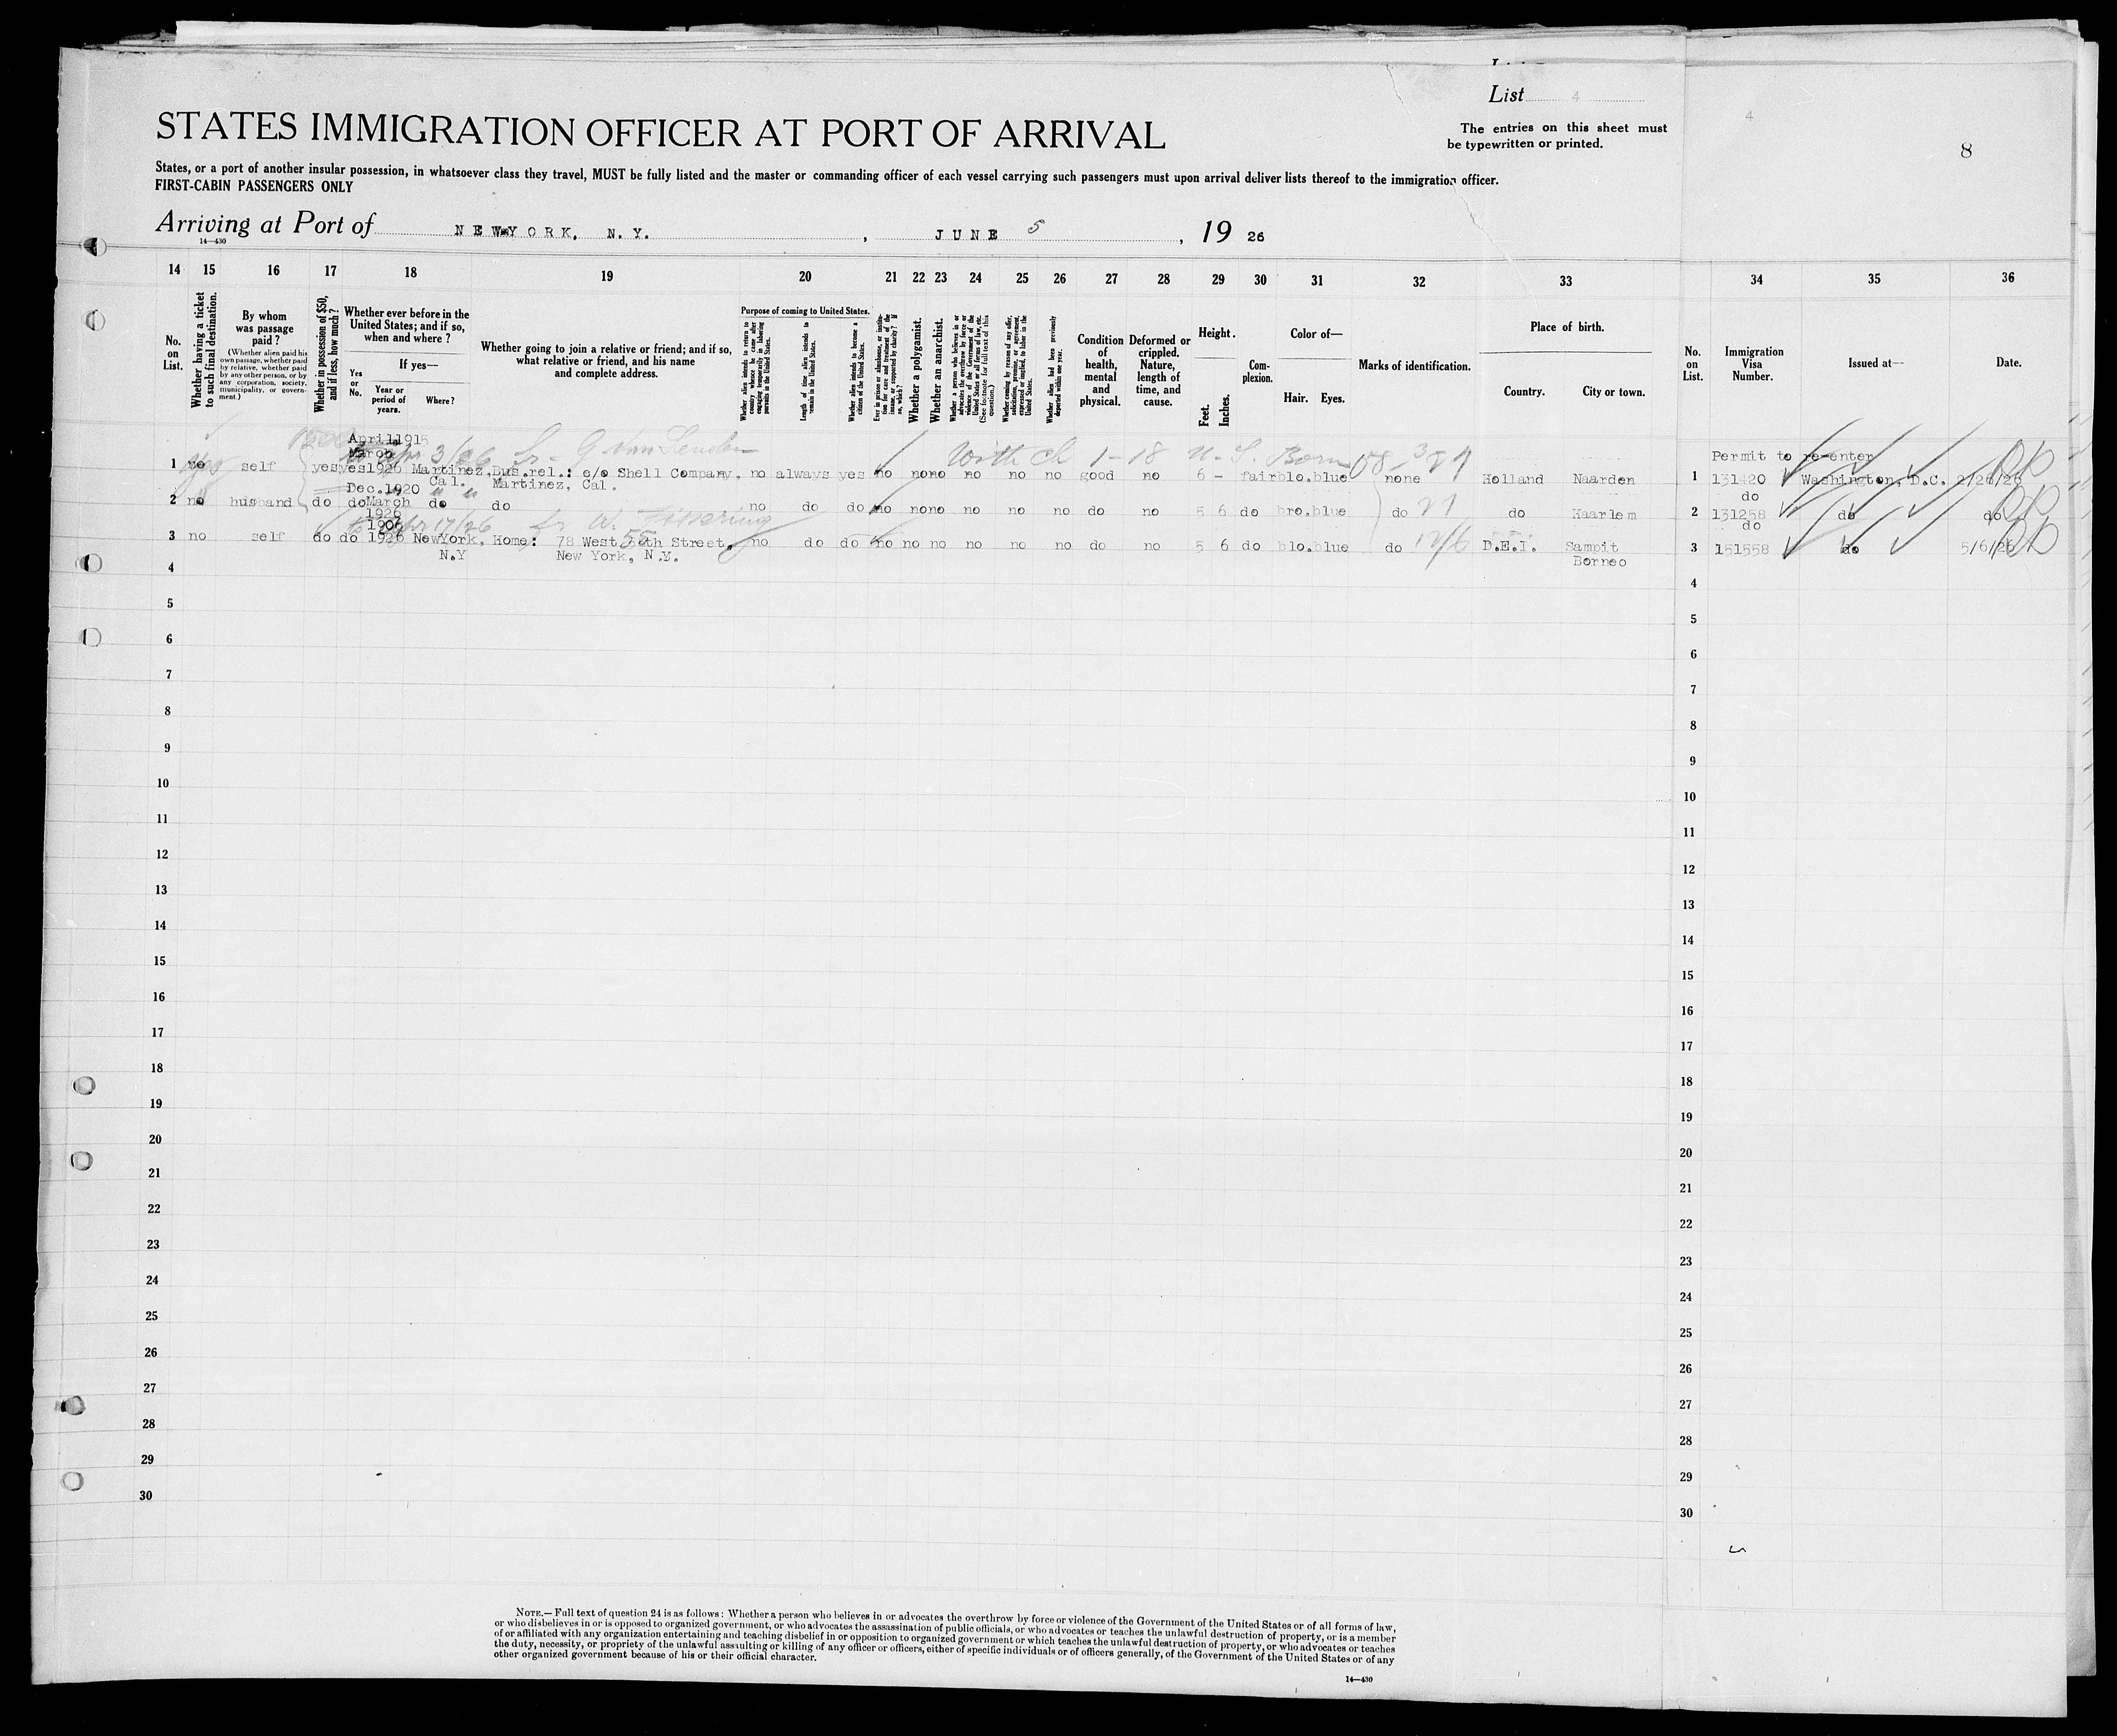 List 4
4
The entries on this sheet must
be typewritten or printed.
8
STATES IMMIGRATION OFFICER AT PORT OF ARRIVAL
States, or a port of another insular possession, in whatsoever class they travel, MUST be fully listed and the master or commanding officer of each vessel carrying such passengers must upon arrival deliver lists thereof to the immigration officer.
FIRST-CABIN PASSENGERS ONLY
Arriving at Port of NEW YORK, N.Y. , JUNE 5 , 19 26
14—430
14 15 16 17 18 19 20 21 22 23 24 25 26 27 28 29 30 31 32 33 34 35 36
No. on List.
Whether having a ticket to such final destination.
By whom was passage paid?
(Whether alien paid his own passage, whether paid by relative, whether paid by any other person, or by any corporation, society, municipality, or government.)
Whether in possession of $50, and if less, how much?
Whether ever before in the United States; and if so, when and where?
If yes—
Yes or No.
Year or period of years.
Where?
Whether going to join a relative or friend; and if so, what relative or friend, and his name and complete address.
Purpose of coming to United States.
Whether alien intends to return to country whence he came after engaging temporarily in laboring pursuits in the United States.
Length of time alien intends to remain in the United States.
Whether alien intends to become a citizen of the United States.
Ever in prison or almshouse, or institution for care and treatment of the insane, or supported by charity? If so, which?
Whether a polygamist.
Whether an anarchist.
Whether a person who believes in or advocates the overthrow by force or violence of the Government of the United States or all forms of law, etc. (See footnote for full text of this question.)
Whether coming by reason of any offer, solicitation, promise, or agreement, expressed or implied, to labor in the United States.
Whether alien had been previously deported within one year.
Condition of health, mental and physical.
Deformed or crippled. Nature, length of time, and cause.
Height.
Feet. Inches.
Complexion.
Color of—
Hair. Eyes.
Marks of identification.
Place of birth.
Country. City or town.
No. on List.
Immigration Visa Number.
Issued at—
Date.
April 1915
March
With Ch 1-18 U.S. Born
Permit to re-enter
1 no self yes yes 1926 Martinez, Bus.rel.: c/o Shell Company, no always yes no no no no no no good no 6 - fair blo. blue none Holland Naarden 1 131420 Washington, D.C. 2/26/26
Cal. Martinez, Cal.
Dec. 1920
do
2 no husband do do March do do no do do no no no no no no do no 5 6 do bro. blue do do Haarlem 2 131258 do do
1926
1906
do
3 no self do do 1926 New York, Home: 78 West 55th Street, no do do no no no no no no do no 5 6 do blo. blue do D.E.I. Sampit 3 151558 do 5/6/26
N.Y New York, N.Y. Borneo
4 4
5 5
6 6
7 7
8 8
9 9
10 10
11 11
12 12
13 13
14 14
15 15
16 16
17 17
18 18
19 19
20 20
21 21
22 22
23 23
24 24
25 25
26 26
27 27
28 28
29 29
30 30
NOTE.—Full text of question 24 is as follows: Whether a person who believes in or advocates the overthrow by force or violence of the Government of the United States or of all forms of law,
or who disbelieves in or is opposed to organized government, or who advocates the assassination of public officials, or who advocates or teaches the unlawful destruction of property, or is a member
of or affiliated with any organization entertaining and teaching disbelief in or opposition to organized government or which teaches the unlawful destruction of property, or who advocates or teaches
the duty, necessity, or propriety of the unlawful assaulting or killing of any officer or officers, either of specific individuals or of officers generally, of the Government of the United States or of any
other organized government because of his or their official character.
14—430